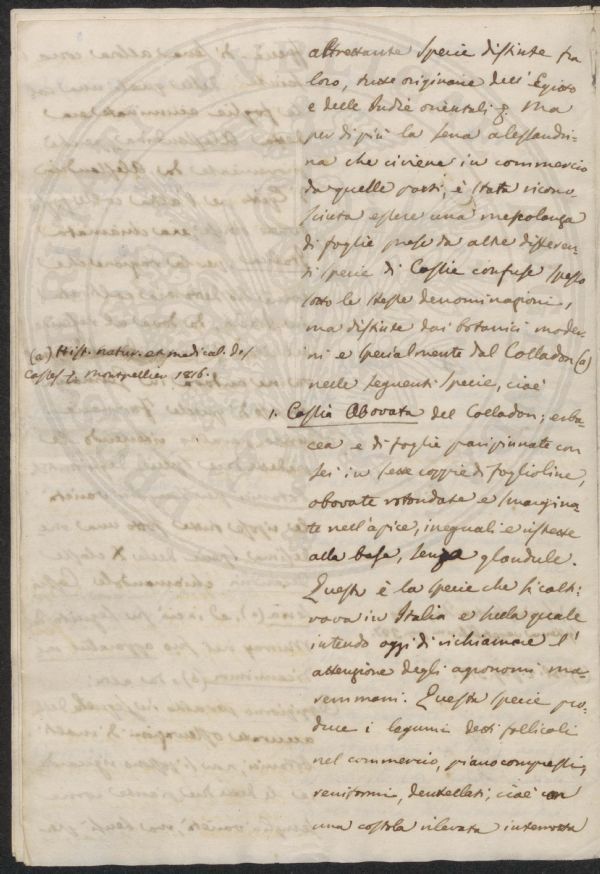 altrettante specie distinte fra
loro, tutte originarie dell' Egitto
e delle Indie orientali. Ma
per di più la sena alessandri-
na che ci viene in commercio
da quelle parti, è stata ricono-
sciuta essere una mescolanza
di foglie prese da altre differen-
ti specie di Cassie confuse spesso
sotto le stesse denominazioni,
ma distinte dai botanici moder-
ni e specialmente dal Colladon (a)
nelle seguenti specie, cioè
(a) Hist. natur. et medical. des
Casses Montpellier 1816.
1. Cassia Obovata del Colladon; erba-
cea e di foglie paripinnate con
sei in sette coppie di foglioline,
obovate rotondate e smargina-
te nell'apice, ineguali e ristrette
alla base, senza glandule.
Questa è la specie che si colti-
vava in Italia e sulla quale
intendo oggi di richiamare l'
attenzione degli agronomi ma-
remmani. Questa specie pro-
duce i legumi detti follicoli
nel commercio, piano compressi,
reniformi, dentellati, cioè con
una costola rilevata interrotta